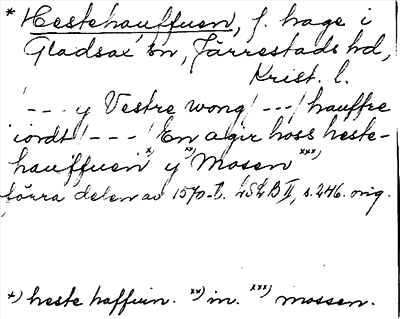 * Hestehauffuen, f. hage i
Gladsax sn, Järrestads hd,
Krist. l.
/--- y Vestre wong /---/ hauffre
iordt /---/ En agir hoss heste-
hauffuen x) y xx) Mosen xxx)
förra delen av 1570-t. LSLB II, s. 246. orig.
x) heste haffuin. xx) in. xxx) mossen.